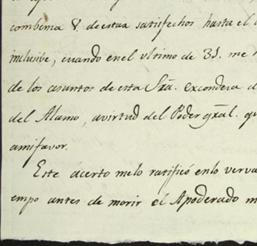 combenia V. de estar satisfechos hasta el
inclusive, cuando en el ultimo de 31. me
de los asuntos de esta Sra. excondera d
del Alamo, avirtud del Poder gral. qu
amifavor.
Este acerto melo ratificó enlo verva
empo antes de morir el Apoderado m